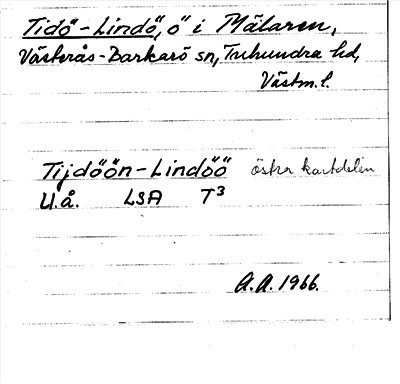 Tidö-Lindö, ö i Mälaren,
Västerås-Barkarö sn, Tuhundra hd,
Västm.l.
Tijdöön-Lindöö östra kartdelen
U.å. LSA T3
A.A. 1966.